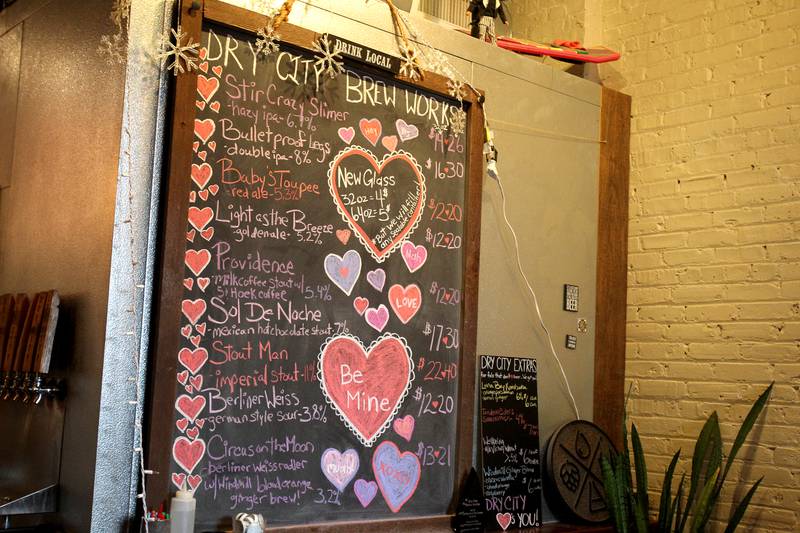 DRINK LOCAL
DRY CITY BREW WORKS
Stir Crazy Slimer
-hazy ipa-
Bulletproof Legs $16♥30
-double ipa-8%
Baby's Toupee
-red ale-5.3%
Light as the Breeze $12♥20
-golden ale-5.2%
Providence $12♥20
-milk coffee stout w/
5) Hoek coffee 5.4%
Sol De Noche 17♥30
-mexican hot chocolate stout, 7%
Stout Man $22♥40
imperial stout-11%
Berliner Weiss $12♥20
german style sour-3.8%
Circus on the Moon $13♥21
-berliner weiss radler
w/ windmill blood orange
ginger brew! 3.2%
New Glass
32oz=4$
64oz=5$
*But we will fill
any sealable container!
LOVE
Be
Mine
muah!
XOXOX
DRY CITY EXTRAS
DRY CITY
♥'s YOU!